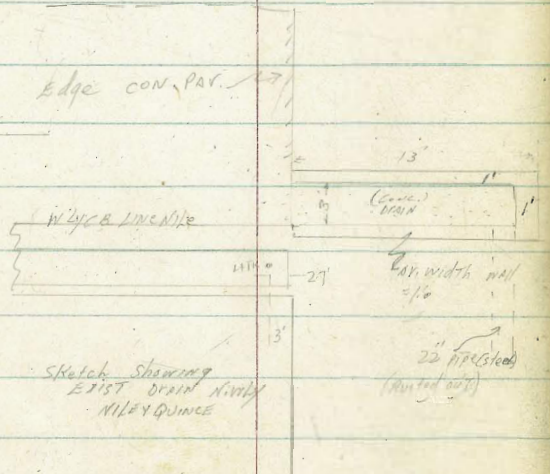 Edge CON. PAV.
13'
1'
3'
(CONC.)
DRAIN
1'
W'LY CB LINE NILE
2.7'
AV. WIDTH WALL
= 1.0
3'
22" PIPE (steel)
(Rusted out)
Sketch Showing
EXIST DRAIN N.W'LY
NILE & QUINCE